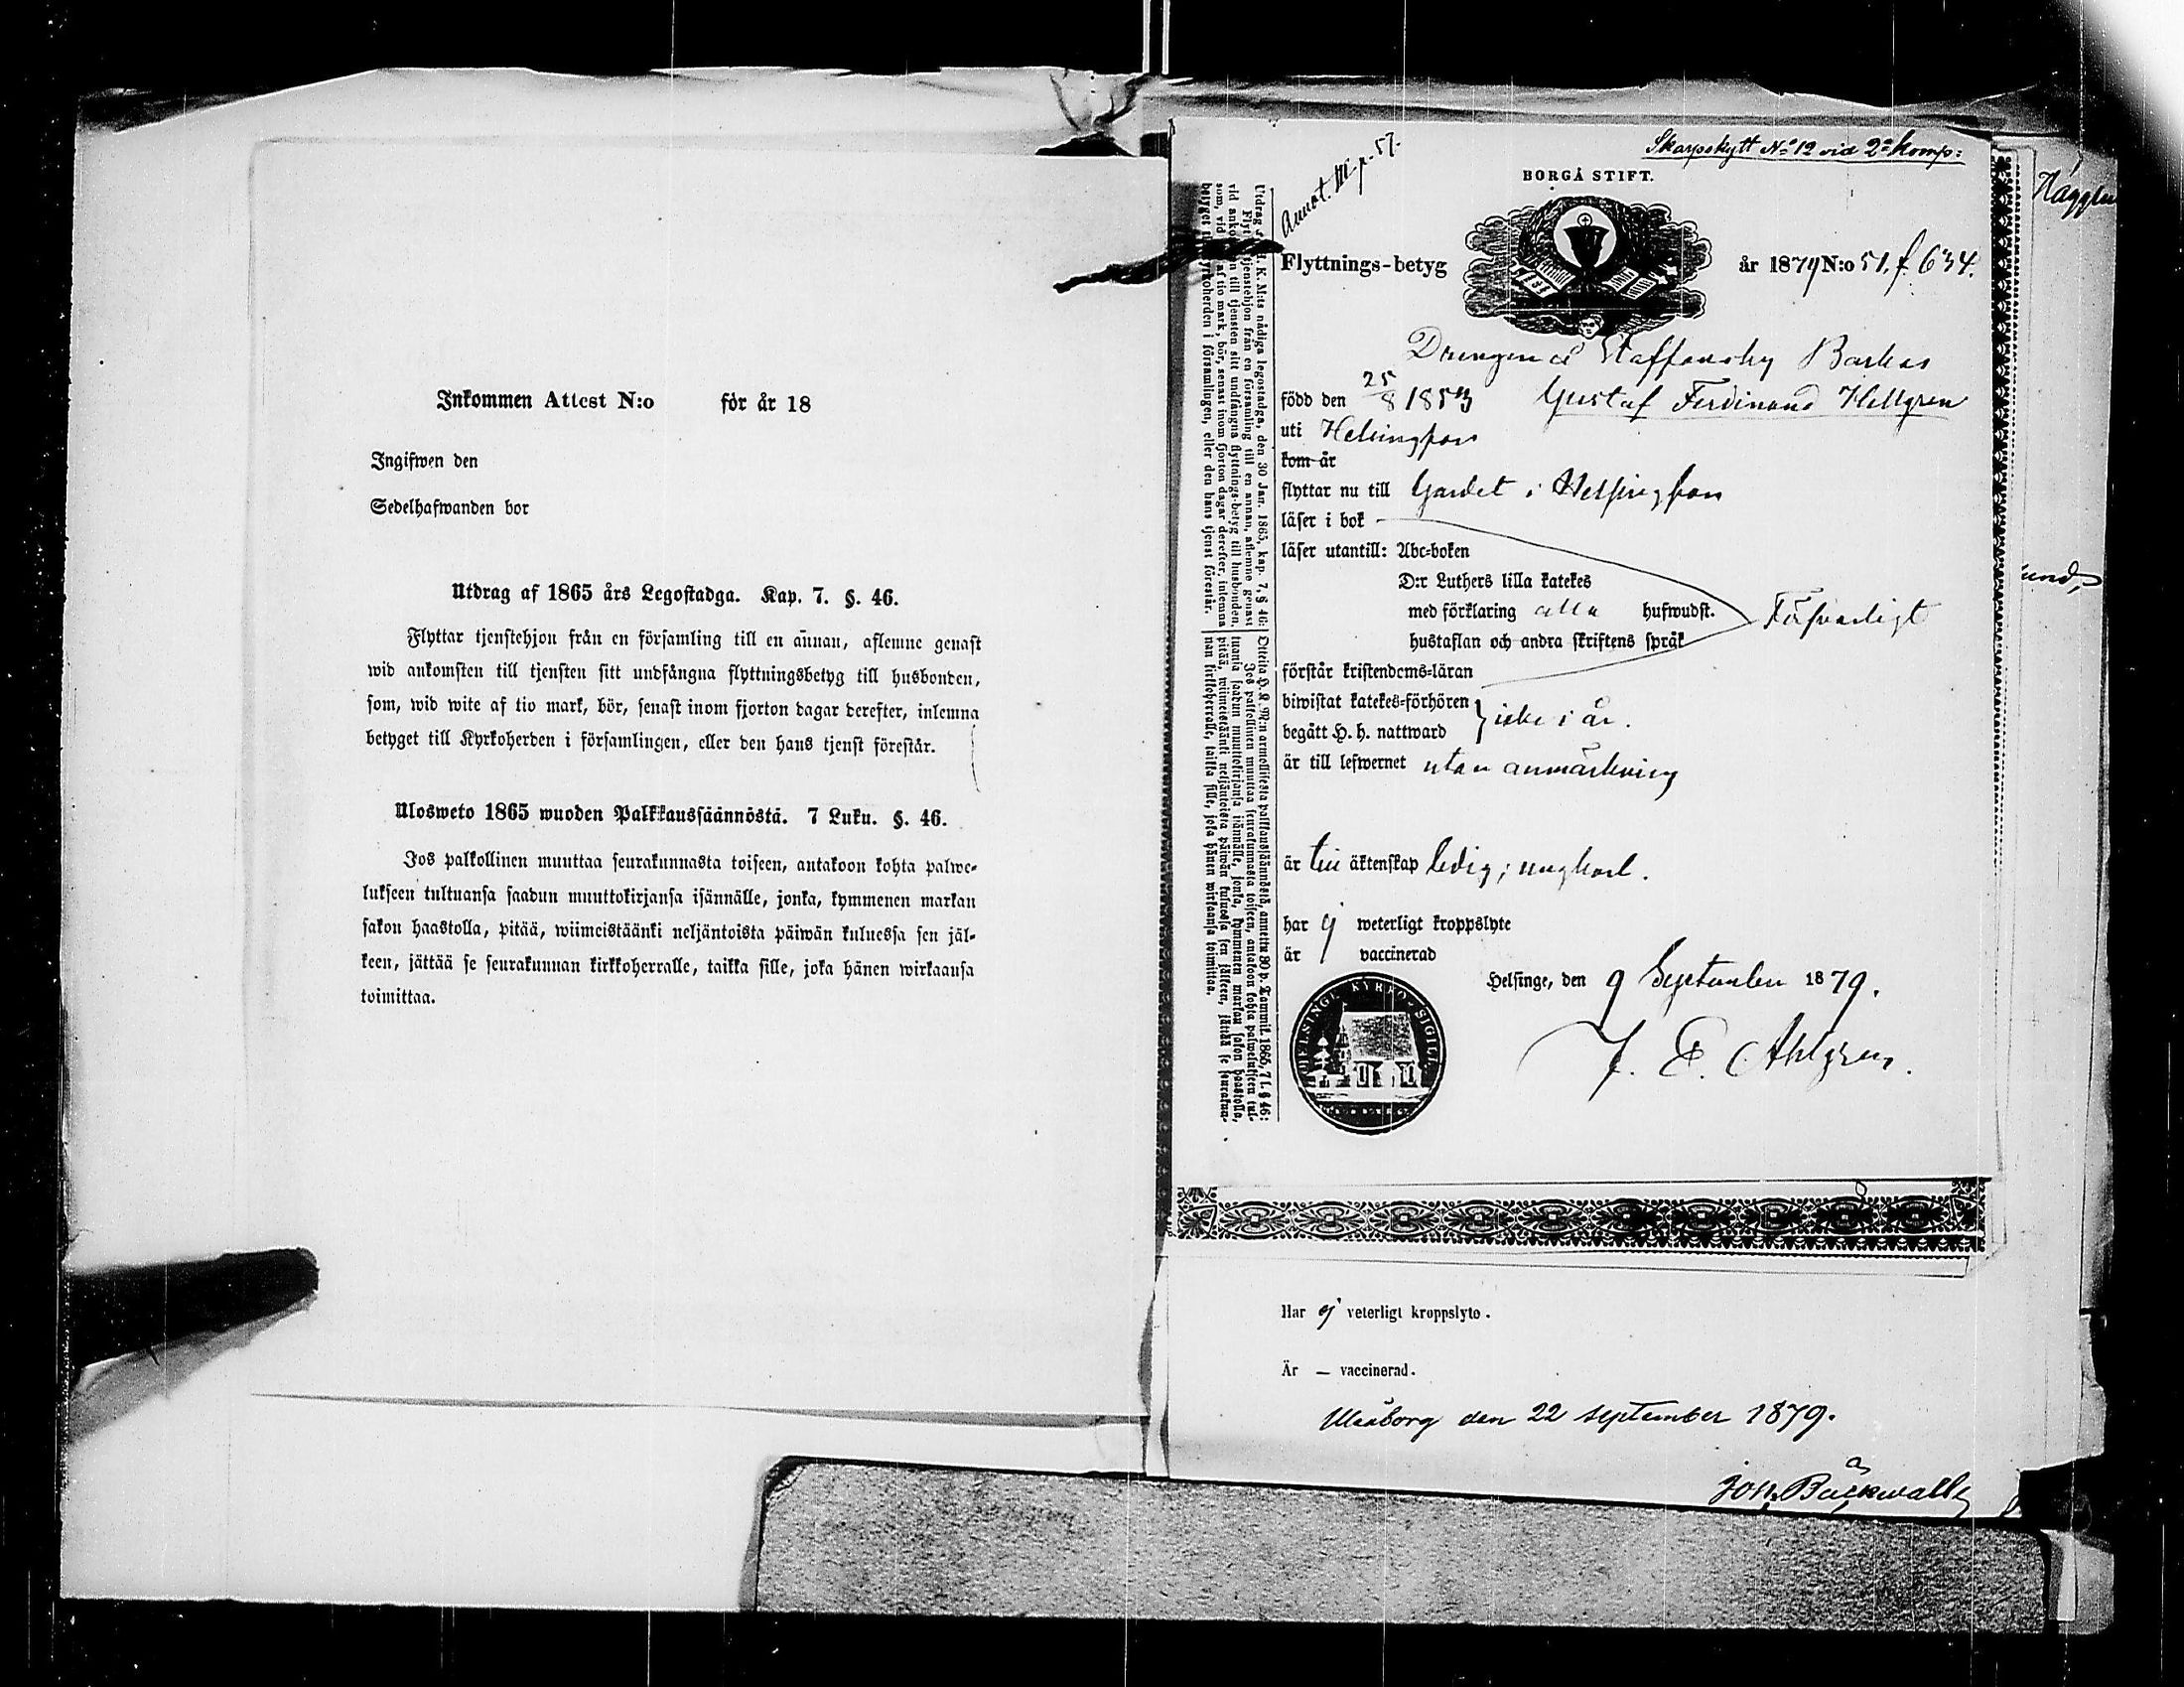 Inkommen Attest N:o för år 18
Ingifwen den
Sedelhafwanden bor
Utdrag af 1865 års Legostadga. Kap. 7. §. 46.
Flyttar tjenstehjon från en församling till en annan, aflemne genast
wid ankomsten till tjensten sitt undfångna flyttningsbetyg till husbonden,
som, wid wite af tio mark, bör, senast inom fjorton dagar derefter, inlemna
betyget till Kyrkoherden i församlingen, eller den hans tjenst förestår.
Ulosweto 1865 wuoden Palkkaussäännöstä. 7 Luku. §. 46.
Jos palkollinen muuttaa seurakunnasta toiseen, antakoon kohta palwe-
lukseen tultuansa saadun muuttokirjansa isännälle, jonka, kymmenen markan
sakon haastolla, pitää, wiimeistäänki neljäntoista päiwän kuluessa sen jäl-
keen, jättää se seurakunnan kirkkoherralle, taikka sille, joka hänen wirkaansa
toimittaa.
Skarpskytt No 12 vid 2a Komp:
Annot. III p. 57.
BORGÅ STIFT.
Flyttnings-betyg år 1879 N:o 51. f. 634.
Drengen Staffansby
född den 25/8 1853 Gustaf Ferdinand Hellgren
uti Helsingfors
kom år
flyttar nu till Gardet i Helsingfors
läser i bok
läser utantill: Abc-boken
D:r Luthers lilla katekes
med förklaring alla hufwudst.
hustaflan och andra skriftens språk
Försvarligt
förstår kristendoms-läran
biwistat katekes-förhören
begått H. h. nattward
icke i år.
är till lefwernet utan anmärkning
är till äktenskap ledig; ungkarl.
har ej weterligt kroppslyte
är vaccinerad
Helsinge, den 9 September 1879.
F. E. Ahlgren.
HELSINGE KYRKO-SIGILL
Utdrag K. M:ts nådiga legostadga, den 30 Jan. 1865, kap. 7, § 46:
tjenstehjon från en församling till en annan, aflemne genast
vid ankomsten till tjensten sitt undfångna flyttnings-betyg till husbonden,
som, vid af tio mark, bör, senast inom fjorton dagar derefter, inlemna
betyget kyrkoherden i församlingen, eller den hans tjenst förestår.
Otteita K. M:n armollisesta palkkaussäännöstä, annettu 30 p. Tammik. 1865, 7 l. § 46:
Jos palkollinen muuttaa seurakunnasta toiseen, antakoon kohta palwelukseen tul-
tuansa saadun muuttokirjansa isännälle, jonka, kymmenen markan sakon haastolla,
pitää, wiimeistäänki neljäntoista päiwän kuluessa sen jälkeen, jättää se seurakun-
nan kirkkoherralle, taikka sille, joka hänen wirkaansa toimittaa.
Har ej veterligt kroppslyte.
Är — vaccinerad.
Uleåborg den 22 september 1879.
Joh. Bäckwall